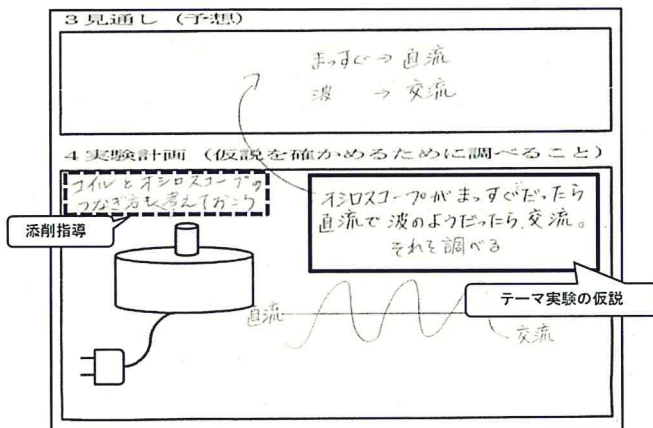 3 見通し（予想）
まっすぐ→直流
波 →交流
4 実験計画（仮説を確かめるために調べること）
コイルとオシロスコープの
つなぎ方も考えておこう
添削指導
オシロスコープがまっすぐだったら
直流で波のようだったら、交流。
それを調べる
テーマ実験の仮説
直流
交流